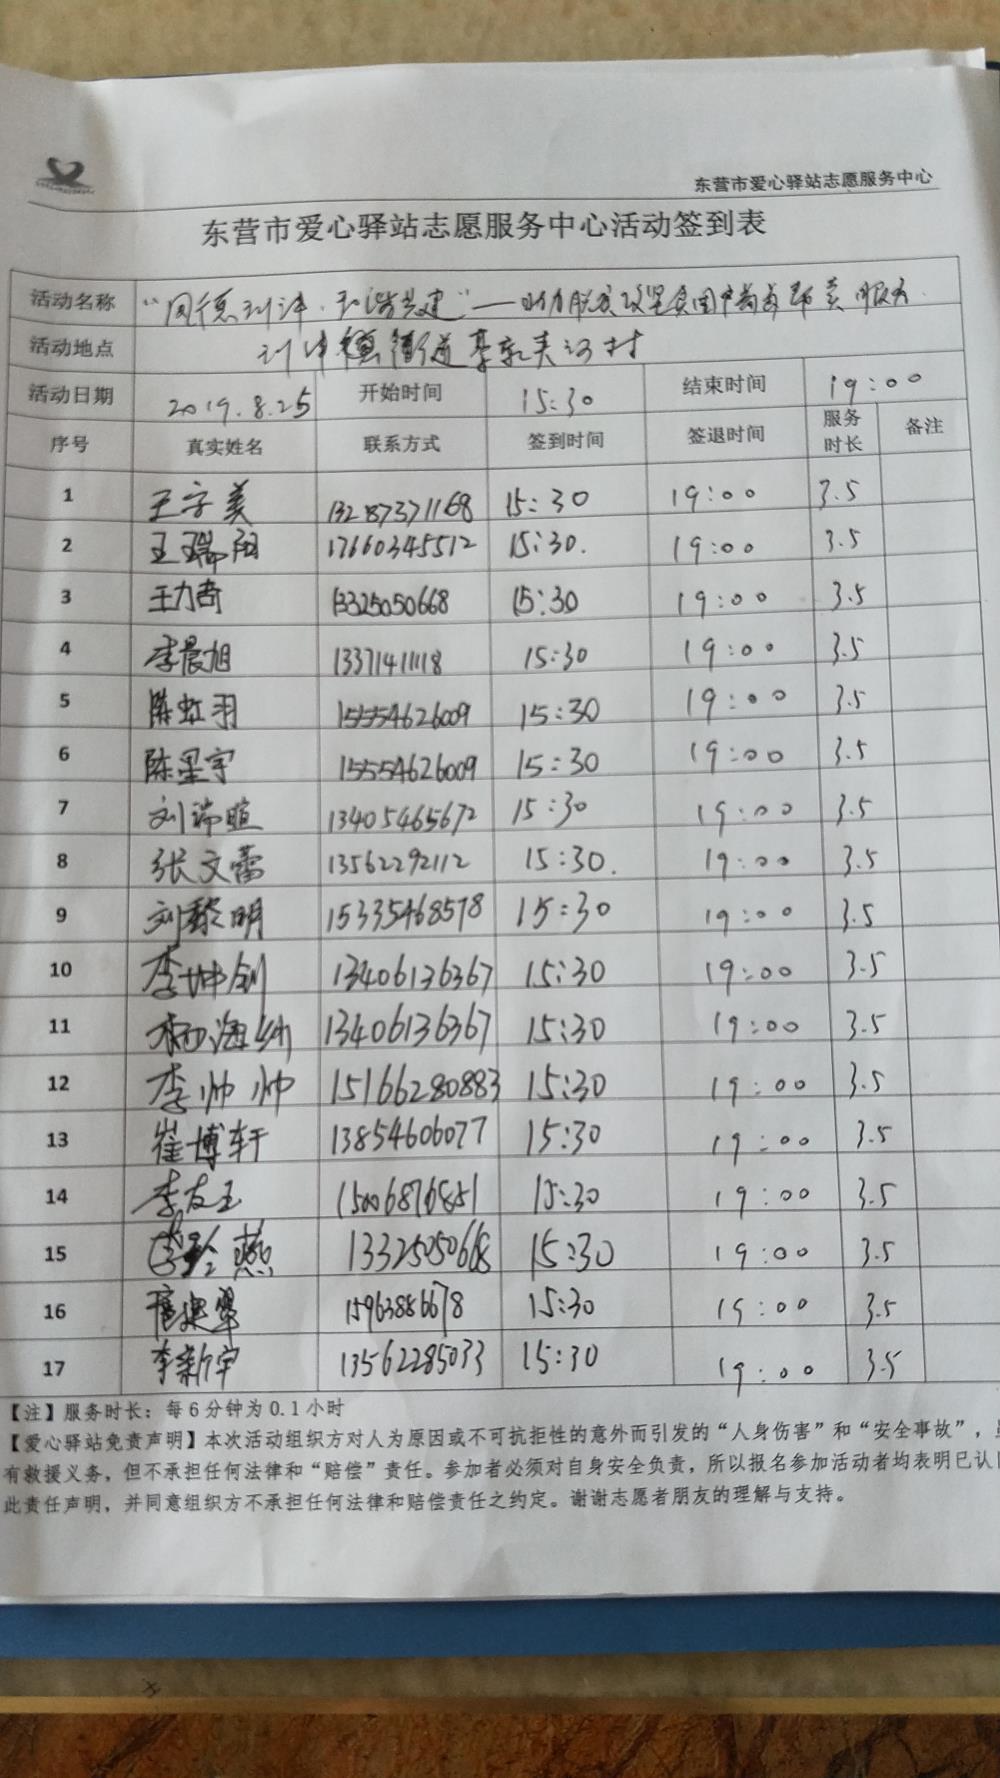 东营市爱心驿站志愿服务中心
东营市爱心驿站志愿服务中心活动签到表
活动名称 "同德利津·和谐共建"——助力脱贫攻坚 服务
活动地点 利津 街道 村
活动日期 2019.8.25 开始时间 15:30 结束时间 19:00
序号 真实姓名 联系方式 签到时间 签退时间 服务时长 备注
1 王字美 13287371168 15:30 19:00 3.5
2 王瑞阳 17660345512 15:30. 19:00 3.5
3 王力奇 13325050668 15:30 19:00 3.5
4 李晨旭 13371411118 15:30 19:00 3.5
5 陈虹羽 15554626009 15:30 19:00 3.5
6 陈星宇 15554626009 15:30 19:00 3.5
7 刘瑞暄 13405465672 15:30 19:00 3.5
8 张文蕾 13562292112 15:30. 19:00 3.5
9 刘黎明 15335468578 15:30 19:00 3.5
10 李坤剑 13406136367 15:30 19:00 3.5
11 海 13406136367 15:30 19:00 3.5
12 李帅帅 15166280883 15:30 19:00 3.5
13 崔博轩 13854606077 15:30 19:00 3.5
14 李友玉 15006876851 15:30 19:00 3.5
15 燕 13325050668 15:30 19:00 3.5
16 15963886678 15:30 19:00 3.5
17 李新宇 13562285033 15:30 19:00 3.5
【注】服务时长：每6分钟为0.1小时
【爱心驿站免责声明】本次活动组织方对人为原因或不可抗拒性的意外而引发的“人身伤害”和“安全事故”，
有救援义务，但不承担任何法律和“赔偿”责任。参加者必须对自身安全负责，所以报名参加活动者均表明已认
此责任声明，并同意组织方不承担任何法律和赔偿责任之约定。谢谢志愿者朋友的理解与支持。